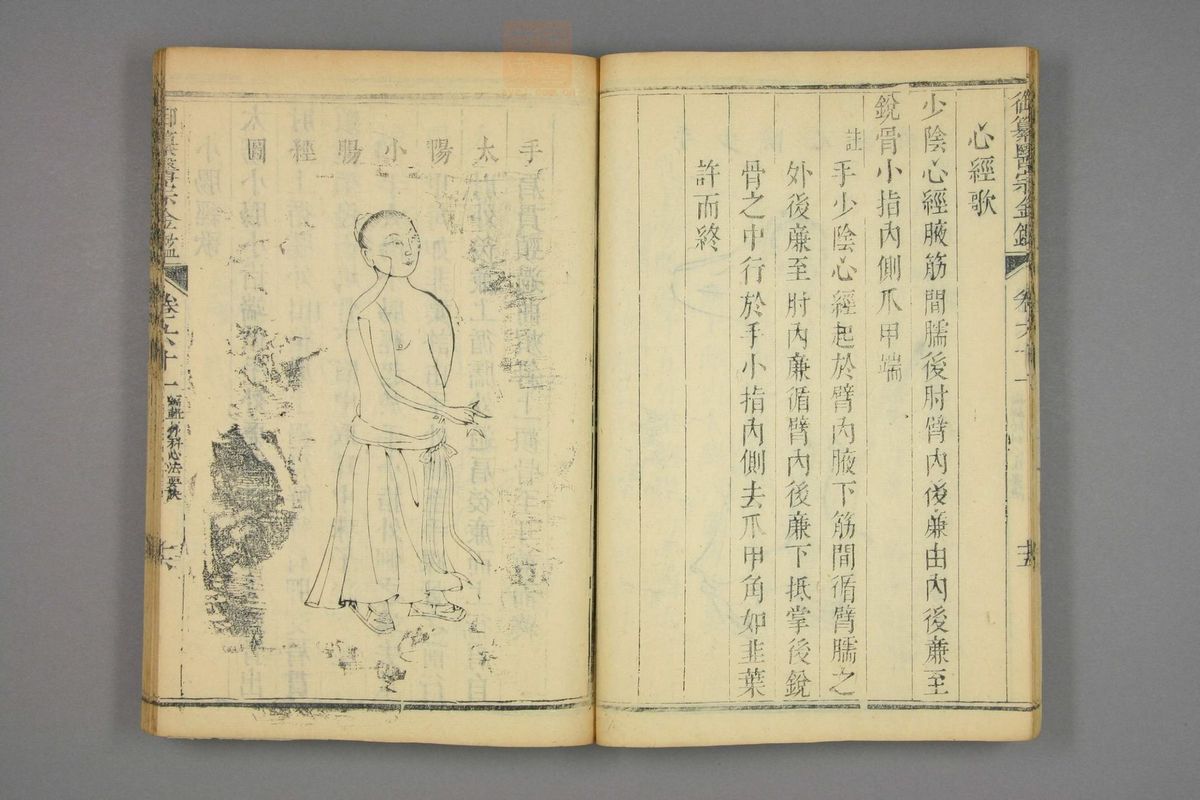 御纂醫宗金鑑
卷六十一
十五
心經歌
少陰心經腋筋間臑後肘臂內後亷由內後亷至
銳骨小指內側爪甲端
註
手少陰心經起於臂內腋下筋間循臂臑之
外後亷至肘內亷循臂內後亷下抵掌後銳
骨之中行於手小指內側去爪甲角如韭葉
許而終
手太陽小腸經圖
御纂醫宗金鑑
卷六十一
編輯外科心法要訣
十六